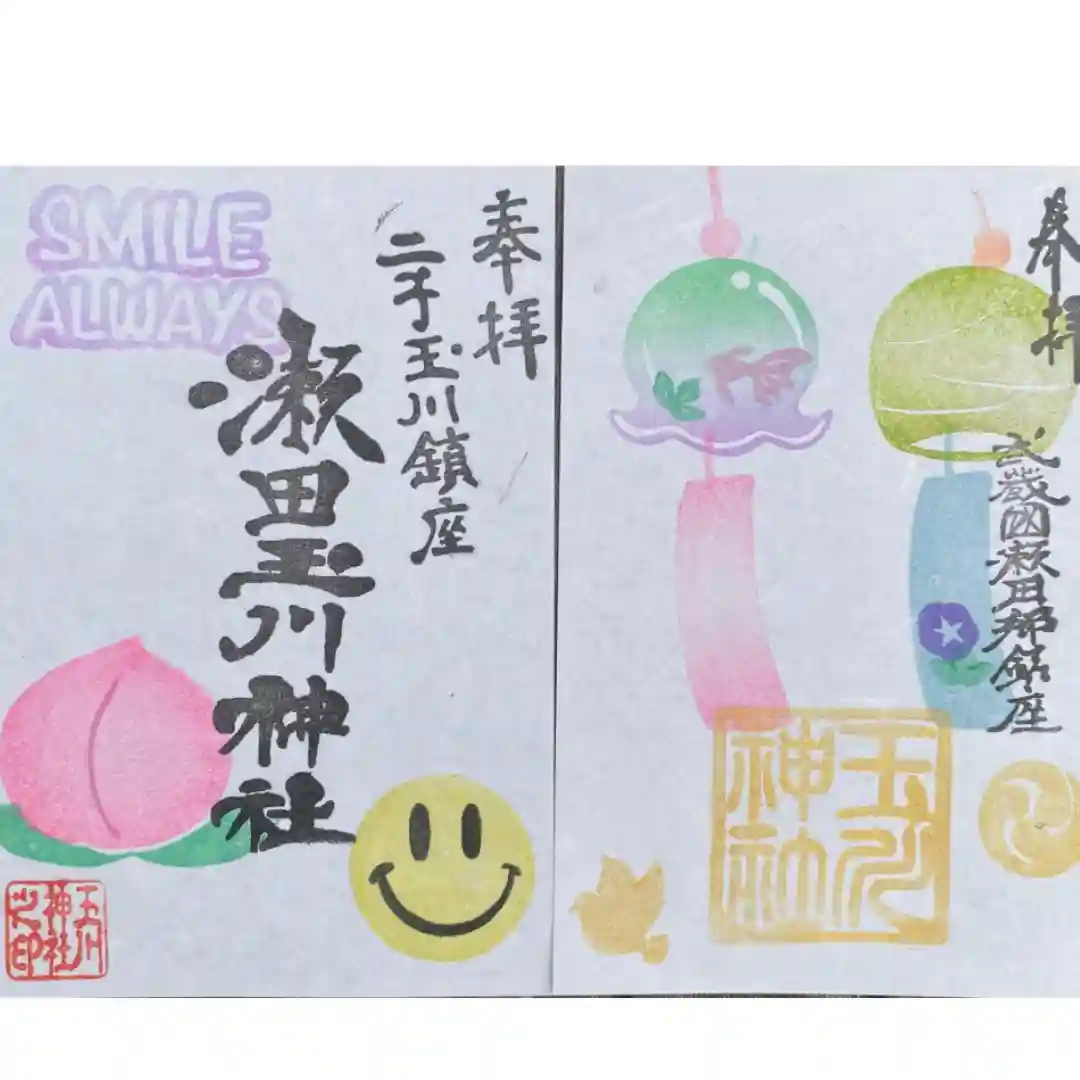 SMILE
ALWAYS
奉拝
二子玉川鎮座
瀬田玉川神社
玉川
神社
之印
奉拝
武蔵國瀬田郷鎮座
玉川
神社